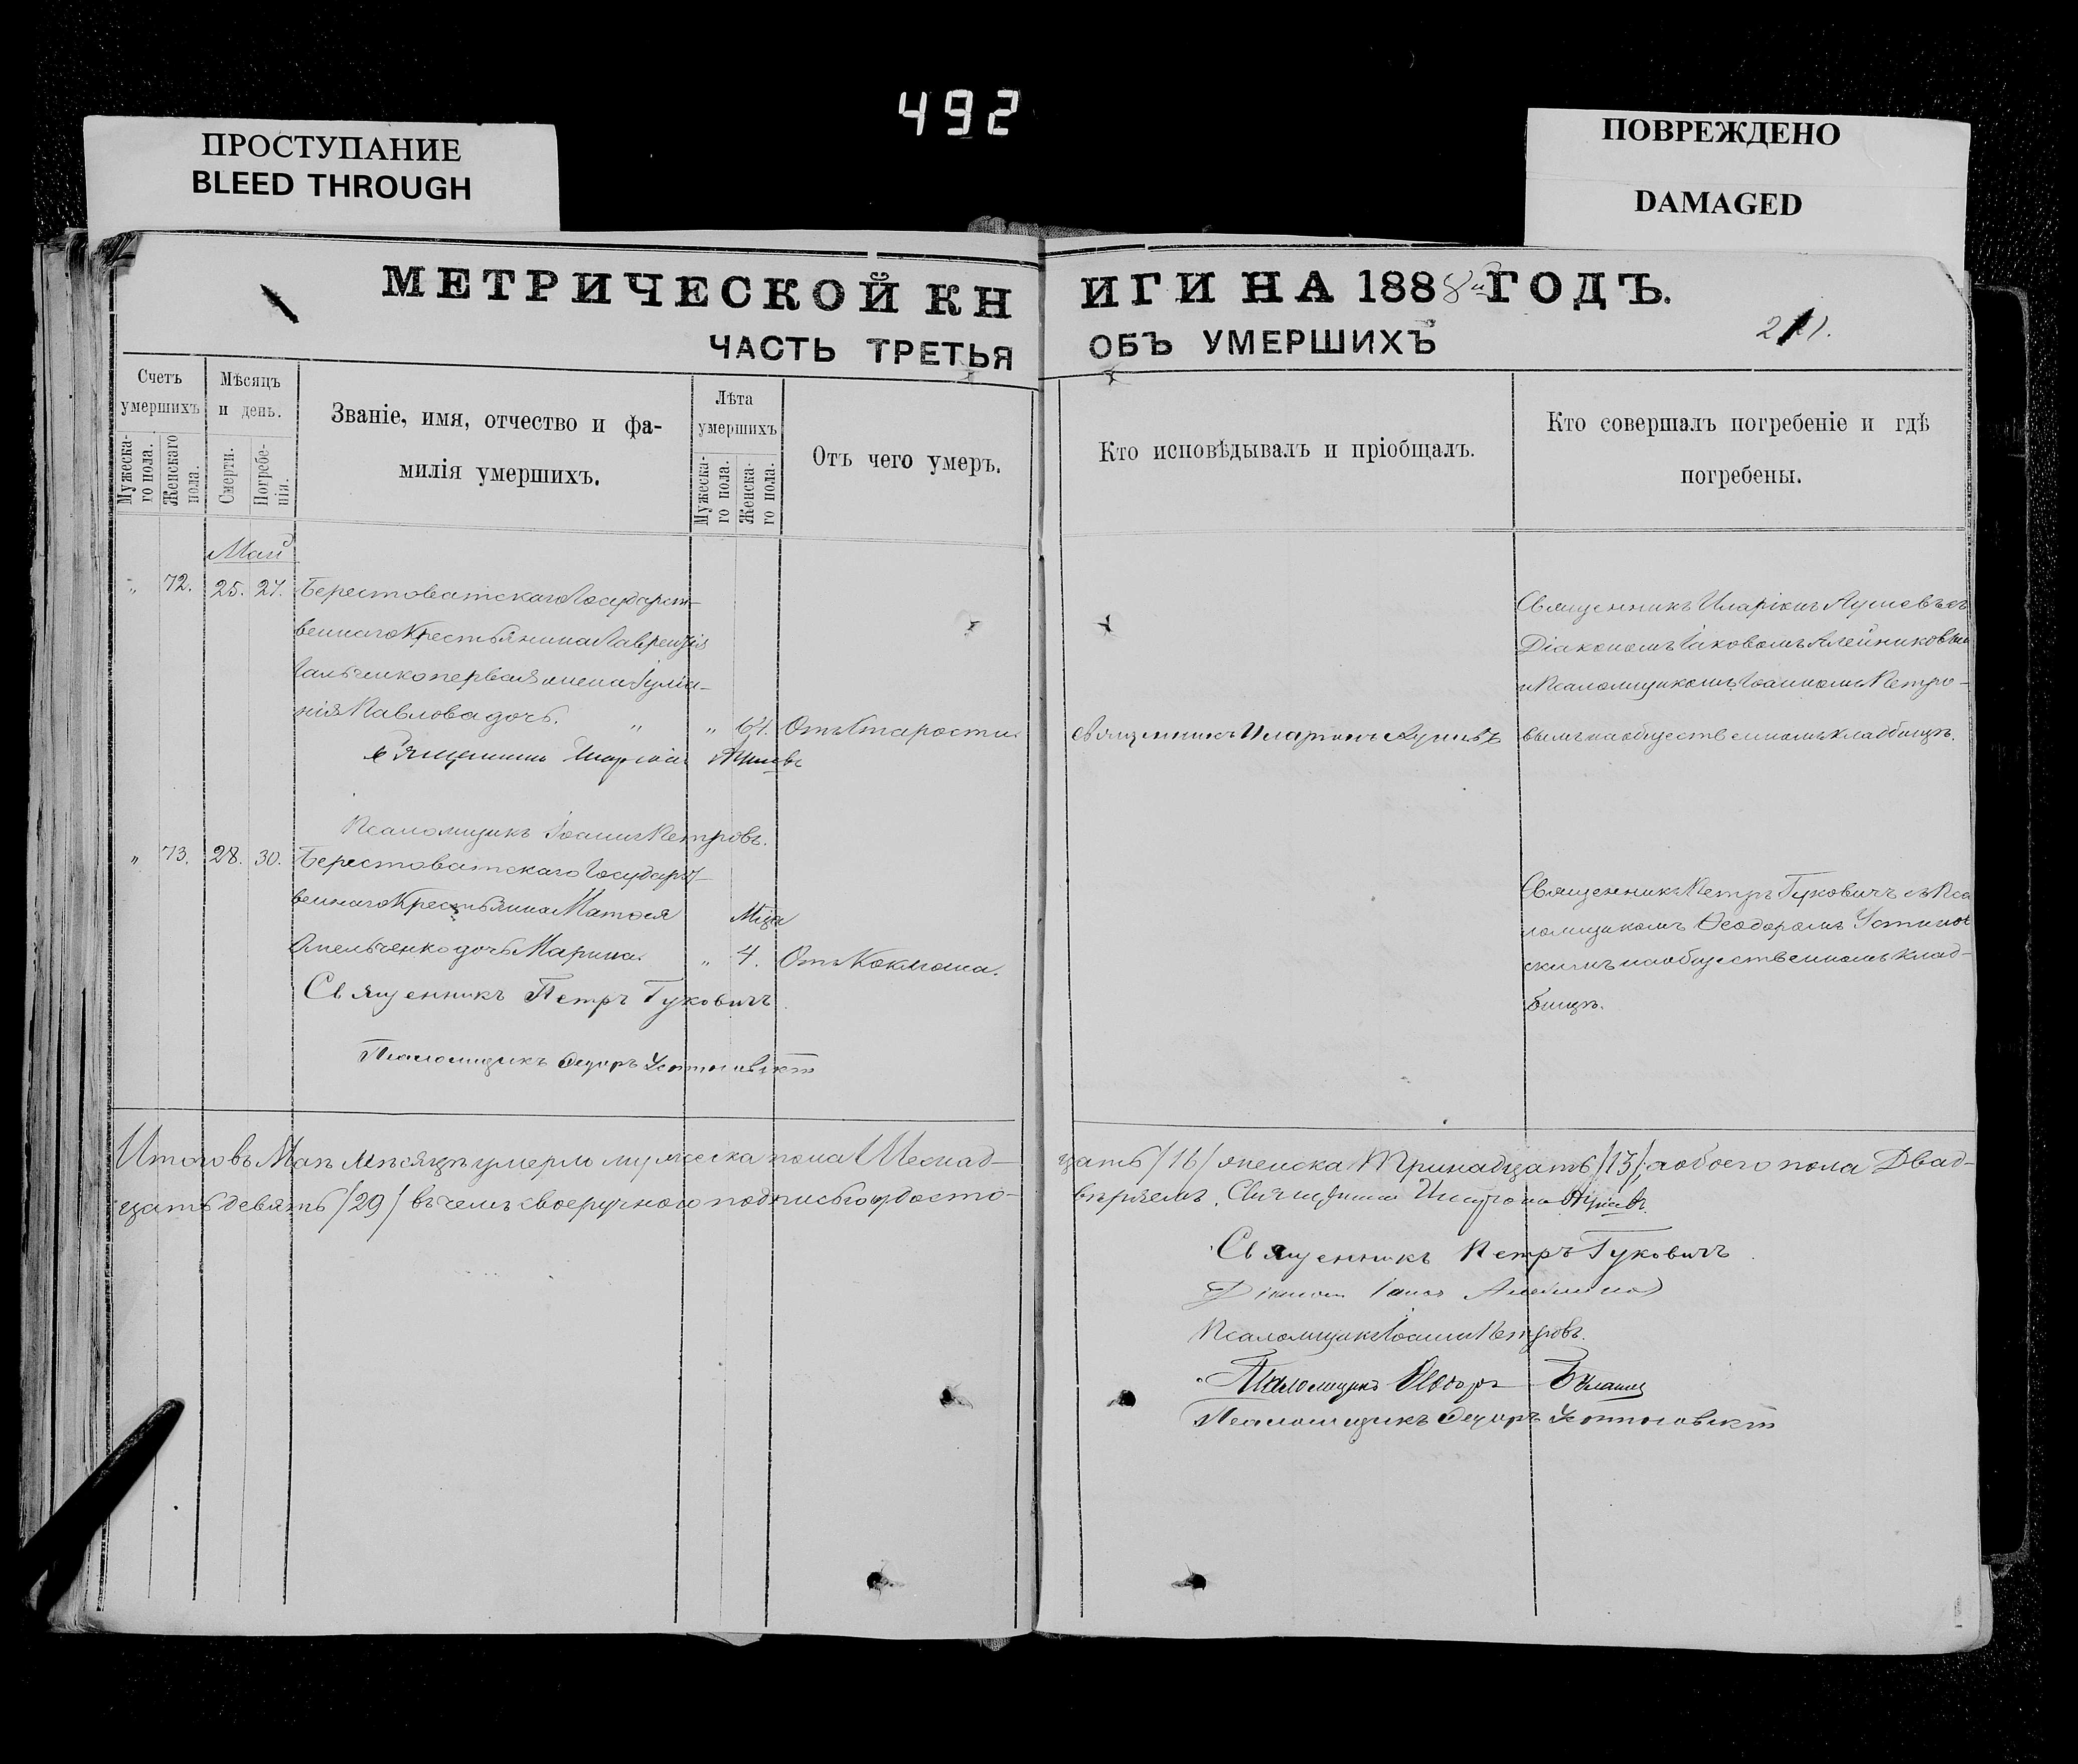 492
ПРОСТУПАНИЕ
BLEED THROUGH
ПОВРЕЖДЕНО
DAMAGED
МЕТРИЧЕСКОЙ КН
ИГИ НА 1888й ГОДЪ.
ЧАСТЬ ТРЕТЬЯ
ОБЪ УМЕРШИХЪ
Счетъ умершихъ
Мужеска-го пола.
Женскаго пола.
Мѣсяцъ и день.
Смерти.
Погребе-нія.
Званіе, имя, отчество и фа-
милія умершихъ.
Лѣта умершихъ
Мужеска-го пола.
Женска-го пола.
Отъ чего умеръ.
Кто исповѣдывалъ и пріобщалъ.
Кто совершалъ погребеніе и гдѣ
погребены.
Май
„ 72. 25. 27. Берестоватскаго Государст-
веннаго Крестьянина Лаврентія
первая жена Іуліа-
нія Павлова дочь. „ „ 64. Отъ Старости.
Священникъ Иларіонъ
Священникъ Иларіонъ
Священникъ Иларіонъ съ
Діакономъ Іаковомъ Алейниковым
и Псаломщикомъ Іоанномъ Петро-
вымъ на общественномъ кладбищѣ.
Псаломщикъ Іоаннъ Петровъ.
„ 73. 28. 30. Берестоватскаго Государст-
веннаго Крестьянина Матѳея Мѣца
Омельченко дочь Марина. „ 4. Отъ Коклюша.
Священникъ Петръ Гуковичъ
Псаломщикъ Ѳедоръ
Священникъ Петръ Гуковичъ съ Пса
ломщикомъ Ѳеодоромъ Устинов
скимъ на общественномъ клад-
бищѣ.
Итого въ Маѣ мѣсяцѣ умерло мужеска пола Шеснад-
цать /16/ женска Тринадцать /13/, а обоего пола Двад-
цать девять /29/ въ чемъ своеручною подписью удосто-
вѣряемъ. Священникъ Иларіонъ
Священникъ Петръ Гуковичъ
Діаконъ
Псаломщикъ Іоаннъ Петровъ.
Псаломщикъ
Псаломщикъ Ѳедоръ